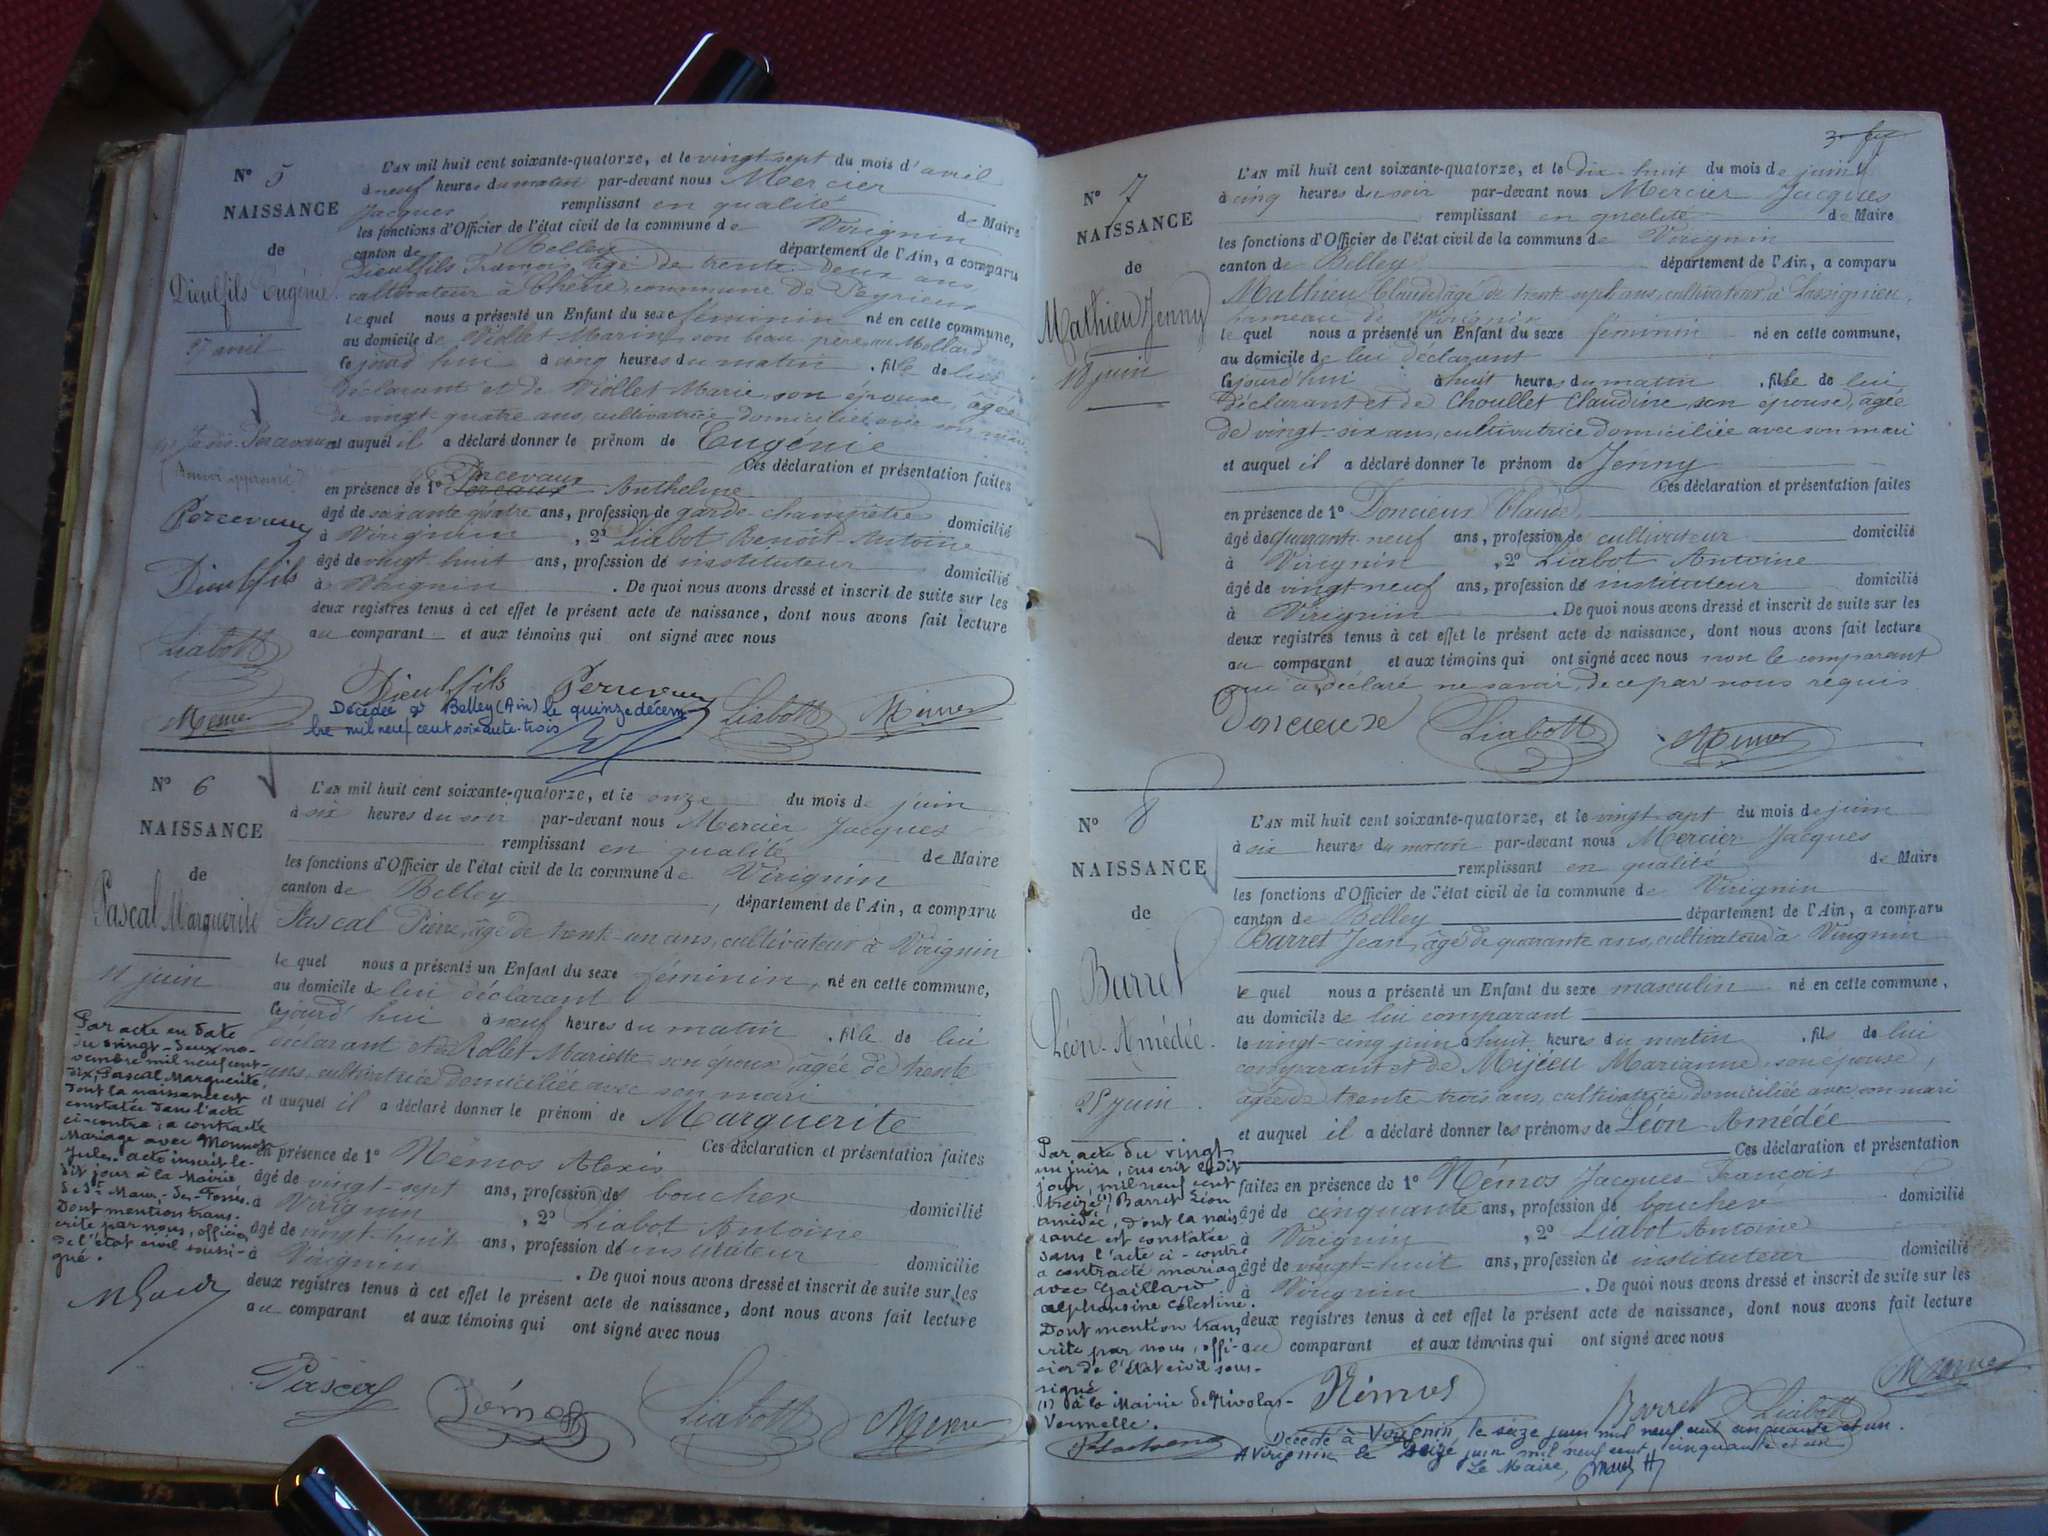 N° 5
NAISSANCE
de
Dieulfils Eugénie
27 avril
Percevaux
Dieulfils
Liabott
Mercier
L'AN mil huit cent soixante-quatorze, et le vingt-sept du mois d'avril
à neuf heures du matin par-devant nous Mercier
Jacques remplissant en qualité de Maire
les fonctions d'Officier de l'état civil de la commune de Virignin
canton de Belley département de l'Ain, a comparu
Dieulfils François, âgé de trente-deux ans,
cultivateur à commune de Peyrieu
lequel nous a présenté un Enfant du sexe féminin né en cette commune,
au domicile de Viollet Marin, son beau père, au Mollard
cejourd'hui à cinq heures du matin, fille de lui
déclarant et de Viollet Marie, son épouse, âgée
de vingt-quatre ans, cultivatrice domiciliée avec son mari
et auquel il a déclaré donner le prénom de Eugénie
Ces déclaration et présentation faites
Percevaux
en présence de 1° Anthelme
âgé de soixante-quatre ans, profession de garde-champêtre domicilié
à Virignin, 2° Liabot Benoît Antoine
âgé de vingt-huit ans, profession de instituteur domicilié
à Virignin. De quoi nous avons dressé et inscrit de suite sur les
deux registres tenus à cet effet le présent acte de naissance, dont nous avons fait lecture
au comparant et aux témoins qui ont signé avec nous
Dieulfils Percevaux Liabott Mercier
Décédée à Belley (Ain) le quinze décem
bre mil neuf cent soixante-trois
N° 6
NAISSANCE
de
Pascal Marguerite
11 juin
Par acte en date
du vingt-deux no-
vembre mil neuf cent
dix, Pascal Marguerite,
dont la naissance est
constatée dans l'acte
ci-contre, a contracté
Mariage avec
Jules. acte inscrit le-
dit jour à la Mairie
de St Maur-des-Fossés.
Dont mention trans-
crite par nous, officier
de l'état civil soussi-
gné.
L'AN mil huit cent soixante-quatorze, et le onze du mois de juin
à six heures du soir par-devant nous Mercier Jacques
remplissant en qualité de Maire
les fonctions d'Officier de l'état civil de la commune de Virignin
canton de Belley, département de l'Ain, a comparu
Pascal Pierre, âgé de trente-un ans, cultivateur à Virignin
lequel nous a présenté un Enfant du sexe féminin, né en cette commune,
au domicile de lui déclarant
cejourd'hui à neuf heures du matin, fille de lui
déclarant et de Rollet Mariette son épouse, âgée de trente
ans, cultivatrice domiciliée avec son mari
et auquel il a déclaré donner le prénom de Marguerite
Ces déclaration et présentation faites
en présence de 1° Némos Alexis
âgé de vingt-sept ans, profession de boucher
à Virignin, 2° Liabot Antoine domicilié
âgé de vingt-huit ans, profession de instituteur
à Virignin domicilié
. De quoi nous avons dressé et inscrit de suite sur les
deux registres tenus à cet effet le présent acte de naissance, dont nous avons fait lecture
au comparant et aux témoins qui ont signé avec nous
Pascal Némos Liabott Mercier
N° 7
NAISSANCE
de
Mathieu Jenny
18 juin
L'AN mil huit cent soixante-quatorze, et le dix-huit du mois de juin
à cinq heures du soir par-devant nous Mercier Jacques
remplissant en qualité de Maire
les fonctions d'Officier de l'état civil de la commune de Virignin
canton de Belley département de l'Ain, a comparu
Mathieu Claude, âgé de trente-sept ans, cultivateur à Lassignieu,
hameau de Virignin
lequel nous a présenté un Enfant du sexe féminin né en cette commune,
au domicile de lui déclarant
cejourd'hui à huit heures du matin, fille de lui
déclarant et de Choullet Claudine, son épouse, âgée
de vingt-six ans, cultivatrice domiciliée avec son mari
et auquel il a déclaré donner le prénom de Jenny
Ces déclaration et présentation faites
en présence de 1° Doncieux Claude
âgé de quarante-neuf ans, profession de cultivateur domicilié
à Virignin, 2° Liabot Antoine
âgé de vingt-neuf ans, profession de instituteur domicilié
à Virignin. De quoi nous avons dressé et inscrit de suite sur les
deux registres tenus à cet effet le présent acte de naissance, dont nous avons fait lecture
au comparant et aux témoins qui ont signé avec nous non le comparant
qui a déclaré ne savoir, de ce par nous requis
Doncieux Liabott Mercier
N° 8
NAISSANCE
de
Barret
Léon-Amédée.
25 juin.
Par acte du vingt
un juin, inscrit ledit
jour, mil neuf cent
treize (1), Barret Léon
Amédée, dont la nais
sance est constatée
dans l'acte ci-contre
a contracté mariage
avec Gaillard
Alphonsine Célestine.
Dont mention trans
crite par nous, offi-
cier de l'état civil sous-
signé
(1) à la Mairie de Nivolas-
Vermelle.
L'AN mil huit cent soixante-quatorze, et le vingt-sept du mois de juin
à six heures du matin par-devant nous Mercier Jacques
remplissant en qualité de Maire
les fonctions d'Officier de l'état civil de la commune de Virignin
canton de Belley département de l'Ain, a comparu
Barret Jean, âgé de quarante ans, cultivateur à Virignin
lequel nous a présenté un Enfant du sexe masculin né en cette commune,
au domicile de lui comparant
le vingt-cinq juin à huit heures du matin, fils de lui
comparant et de Mijieu Marianne, son épouse,
âgée de trente-trois ans, cultivatrice, domiciliée avec son mari
et auquel il a déclaré donner les prénoms de Léon Amédée
Ces déclaration et présentation
faites en présence de 1° Némos Jacques François
âgé de cinquante ans, profession de boucher domicilié
à Virignin, 2° Liabot Antoine
âgé de vingt-huit ans, profession de instituteur domicilié
à Virignin. De quoi nous avons dressé et inscrit de suite sur les
deux registres tenus à cet effet le présent acte de naissance, dont nous avons fait lecture
au comparant et aux témoins qui ont signé avec nous
Némos Barret Liabott Mercier
Décédé à Virignin, le seize juin mil neuf cent cinquante et un.
A Virignin le seize juin mil neuf cent cinquante et un
Le Maire,